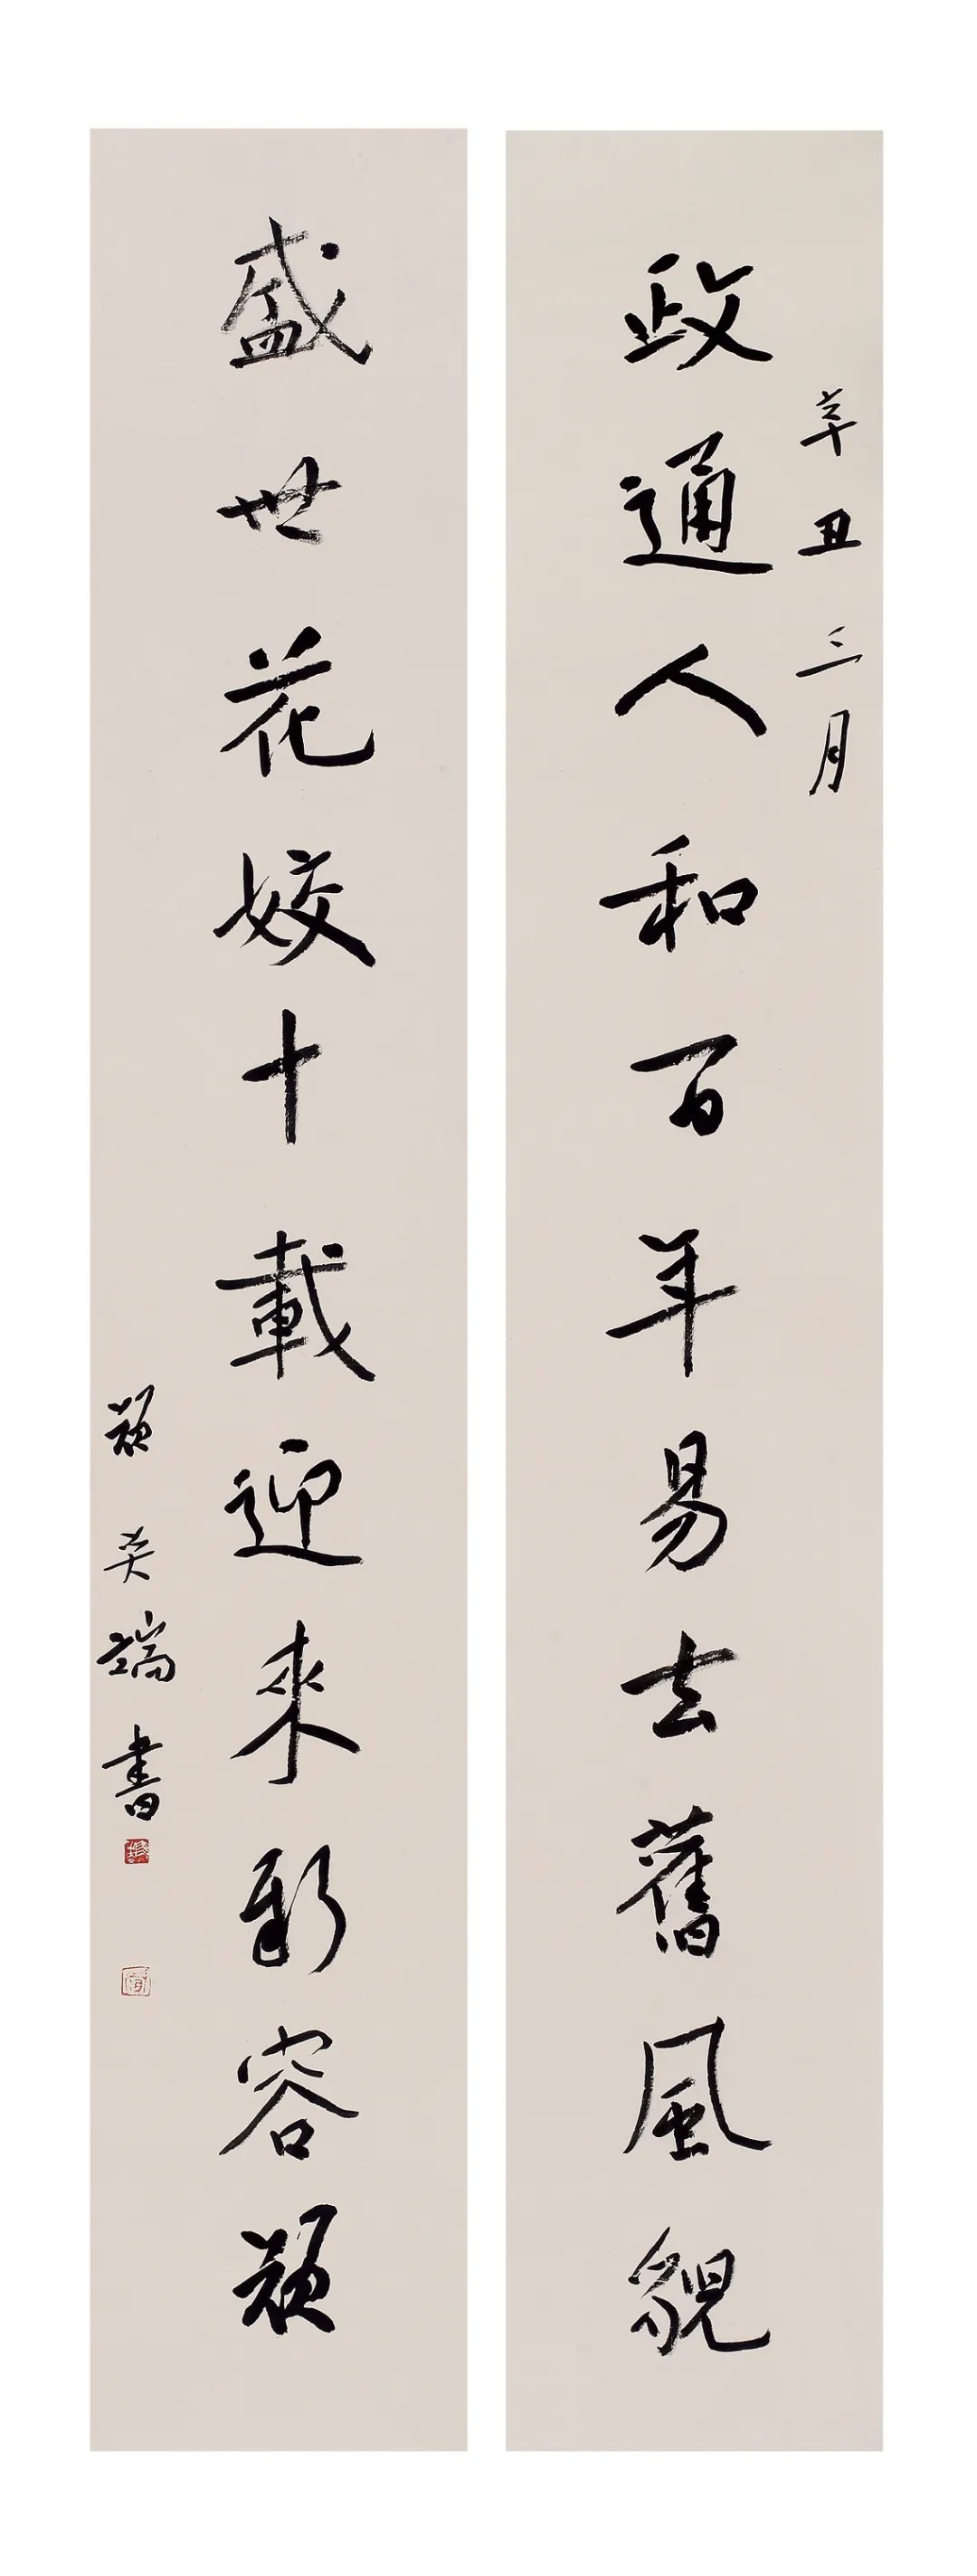 辛丑三月
政通人和百年易去舊風貌
盛世花姣十載迎來新容顏
顏奕端書